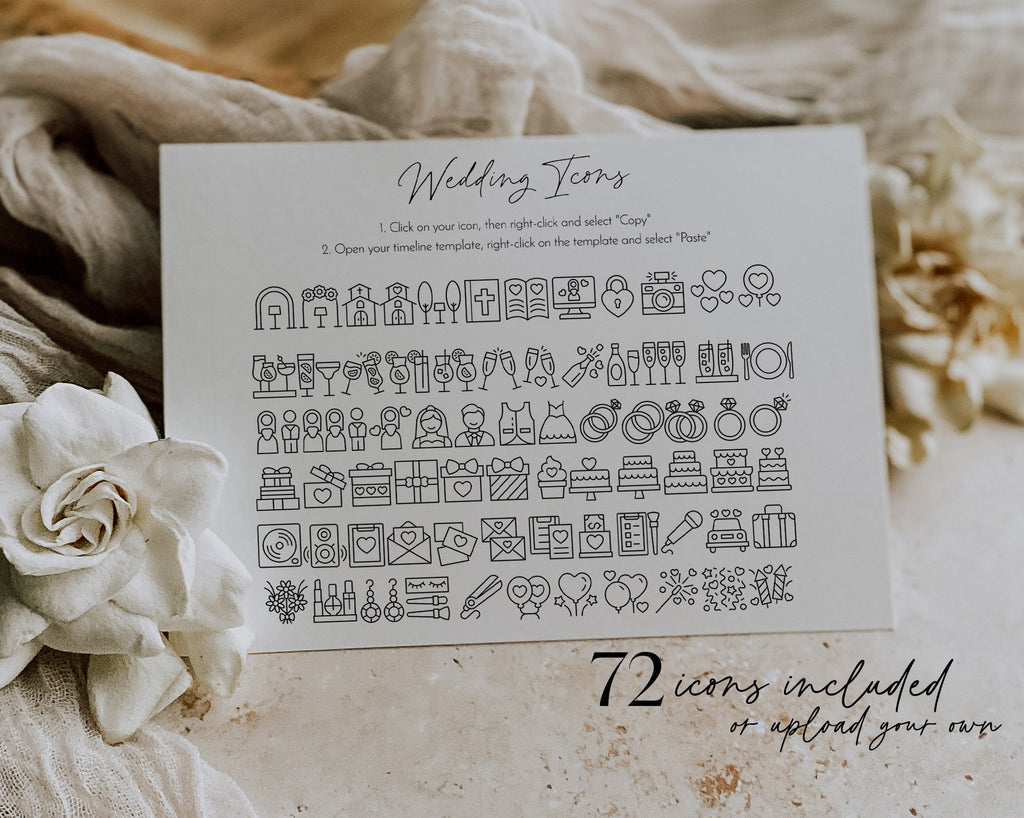 Wedding Icons
1. Click on your icon, then right-click and select "Copy"
2. Open your timeline template, right-click on the template and select "Paste"
72 icons included
or upload your own